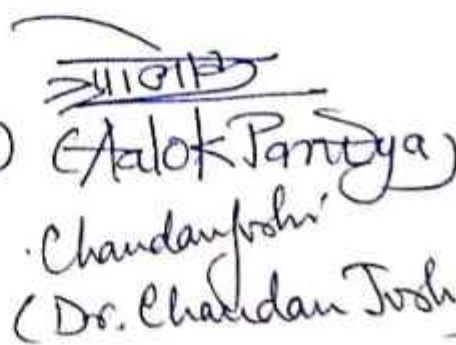 ) (Aalok Pandya)
Chandan Joshi
(Dr. Chandan Josh